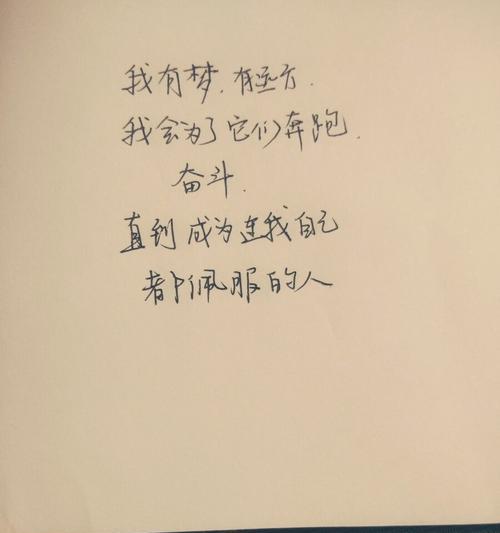 我有梦,有远方.
我会为了它们奔跑.
奋斗.
直到成为连我自己
都佩服的人